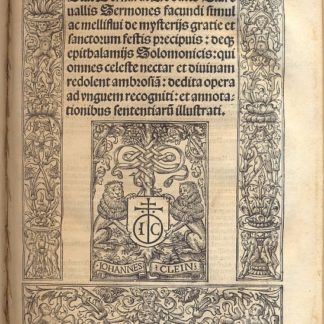 uallis Sermones facundi simul
ac mellislui de mysterijs gratie et
sanctorum festis precipuis : deqȝ
epithalamijs Solomonicis: qui
omnes celeste nectar et diuinam
redolent ambrosiã: dedita opera
ad vnguem recogniti: et annota-
tionibus sententiarũ illustrati.
I C
IOHANNES : CLEIN :